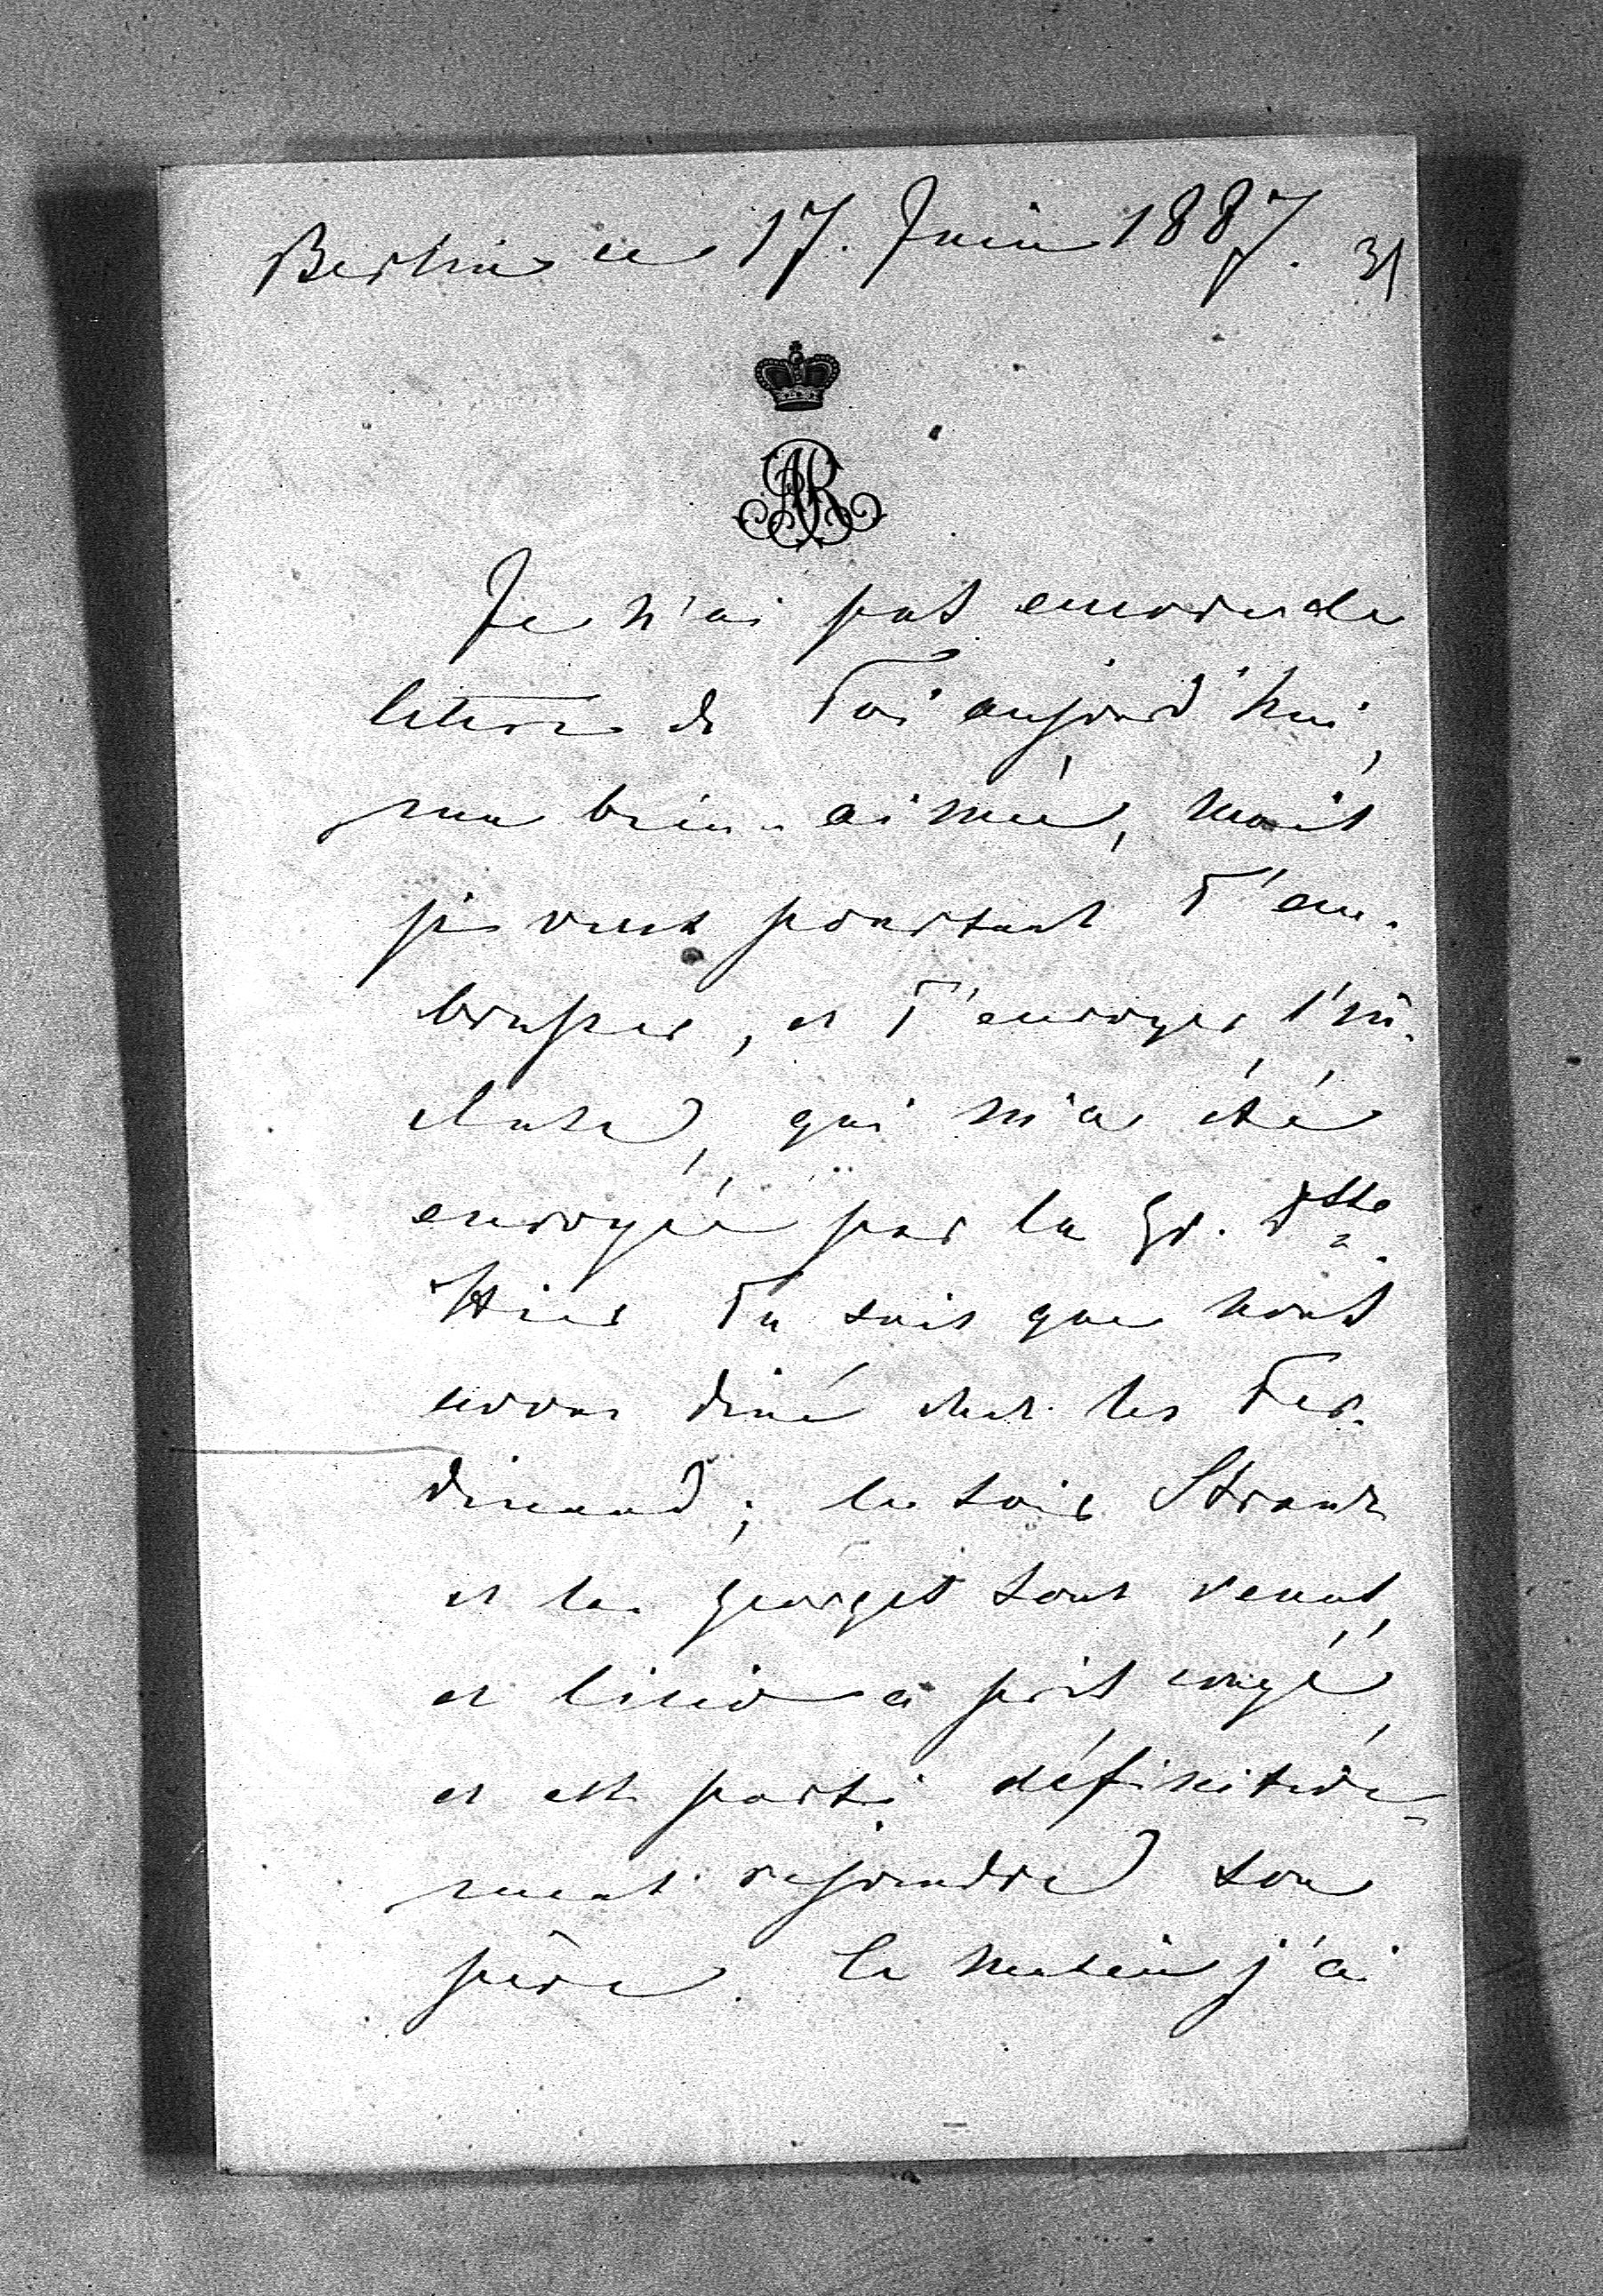 Berlin ce 17. Juin 1887. 31
AR
Je n'ai pas encore de
lettre de Toi aujourd'hui,
ma bien-aimée, mais
je veux pourtant T'em-
brasser, et T'envoyer l'in-
cluse, qui m'a été
envoyée par la Gr. Dsse
Hier Tu sais que nous
avons diné chez les Fer-
dinand; le soir Strantz
et les Georges sont venus,
et a pris congé,
et est parti définitive-
ment rejoindre son
père. Le matin j'ai